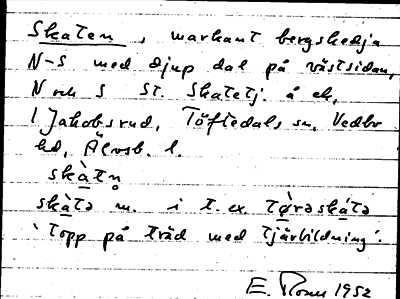 Skaten, markant bergskedja
N-S med djup dal på västsidan,
N och S St. Skatetj. å ek,
1 Jakobsrud, Töftedals sn, Vedbo
hd, Älvsb. l.
skàtn̥
skàtə m. i t. ex. tæ̀rəskátə
'topp på träd med tjärbildning'.
E. 1952